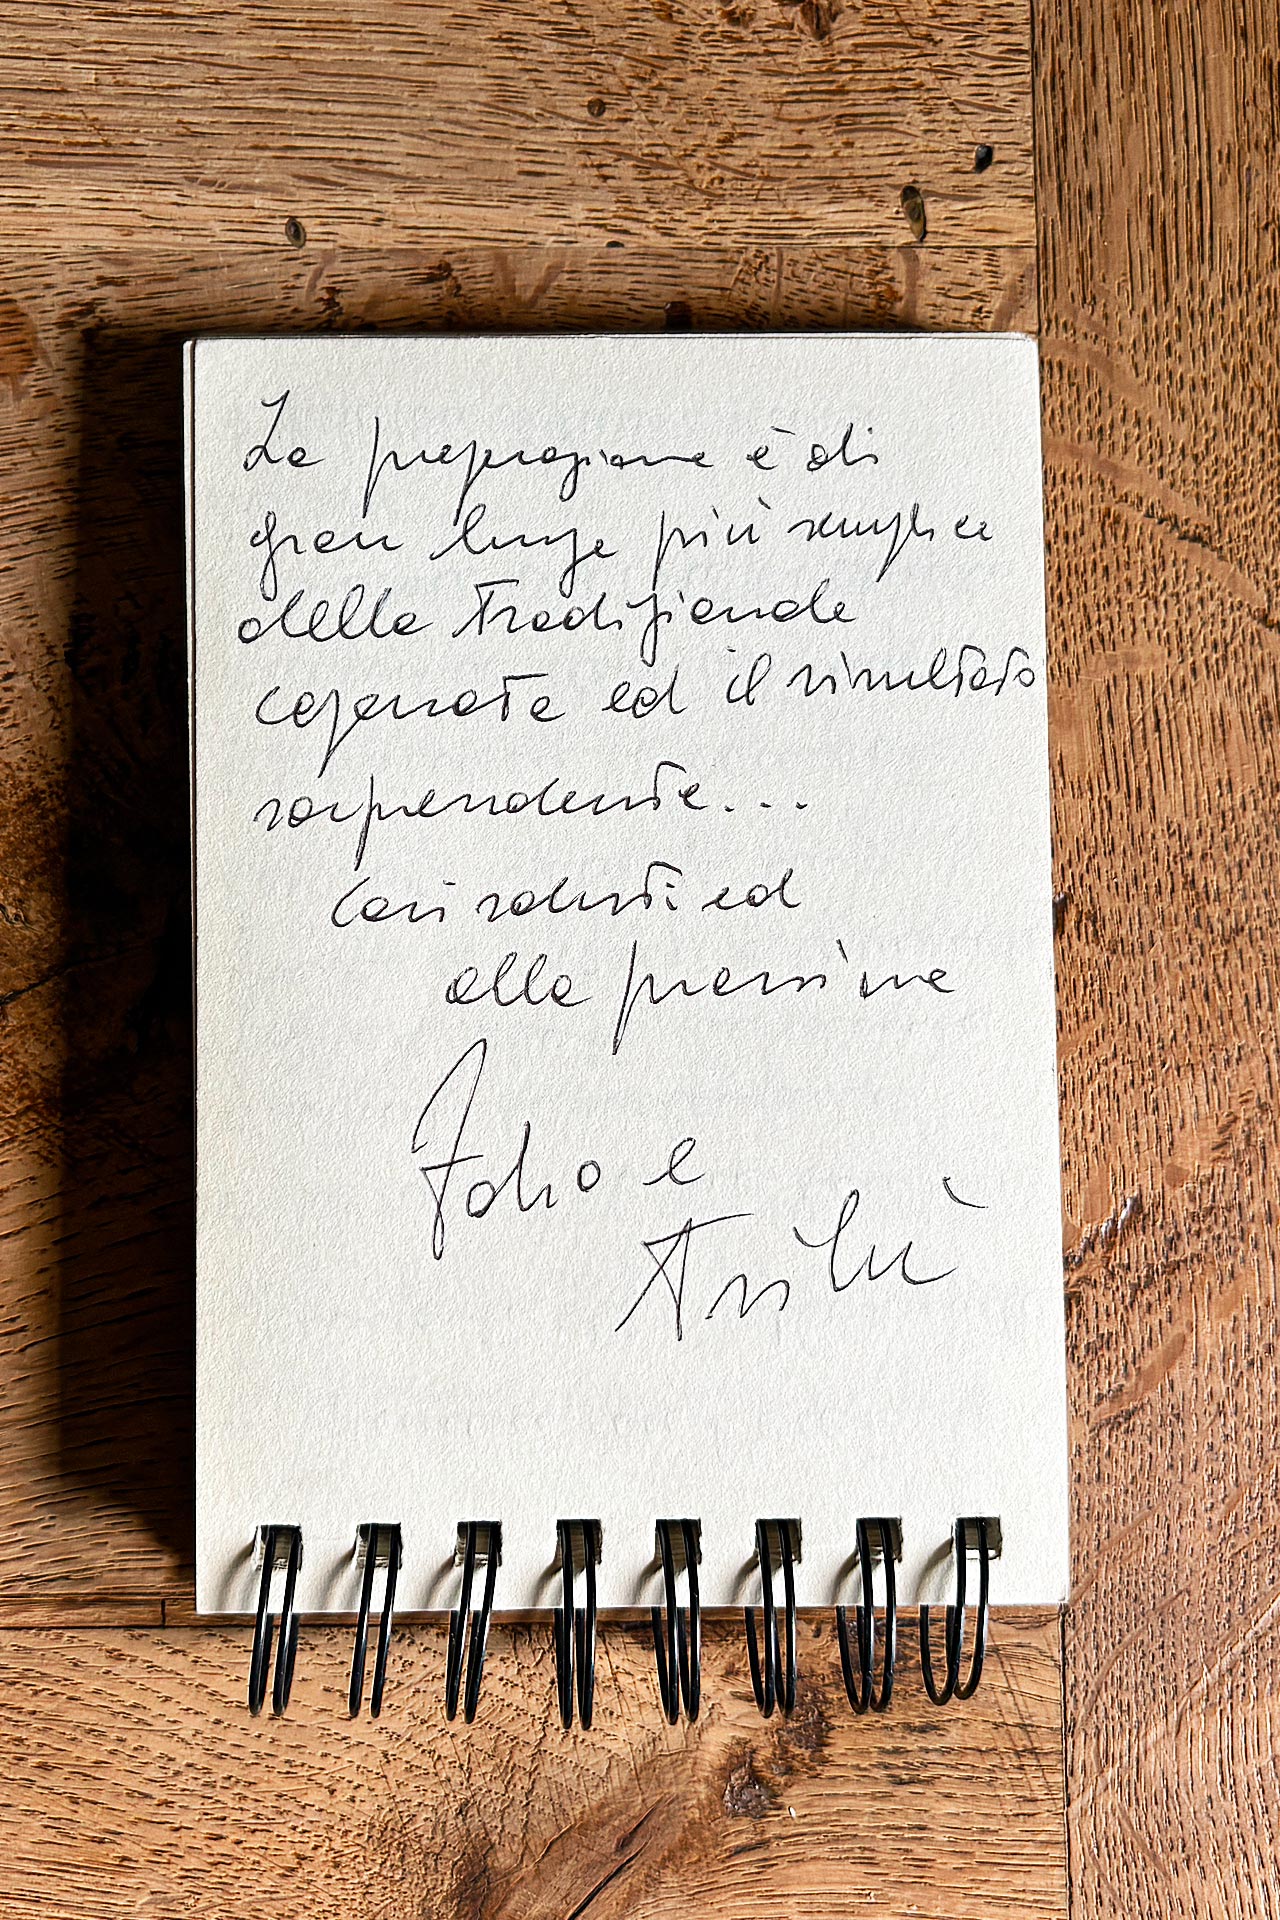 La preparazione è di
gran lunga più semplice
della tradizionale
carbonata ed il risultato
sorprendente...
Cari saluti ed
alla prossima
Fabio e
Annalù